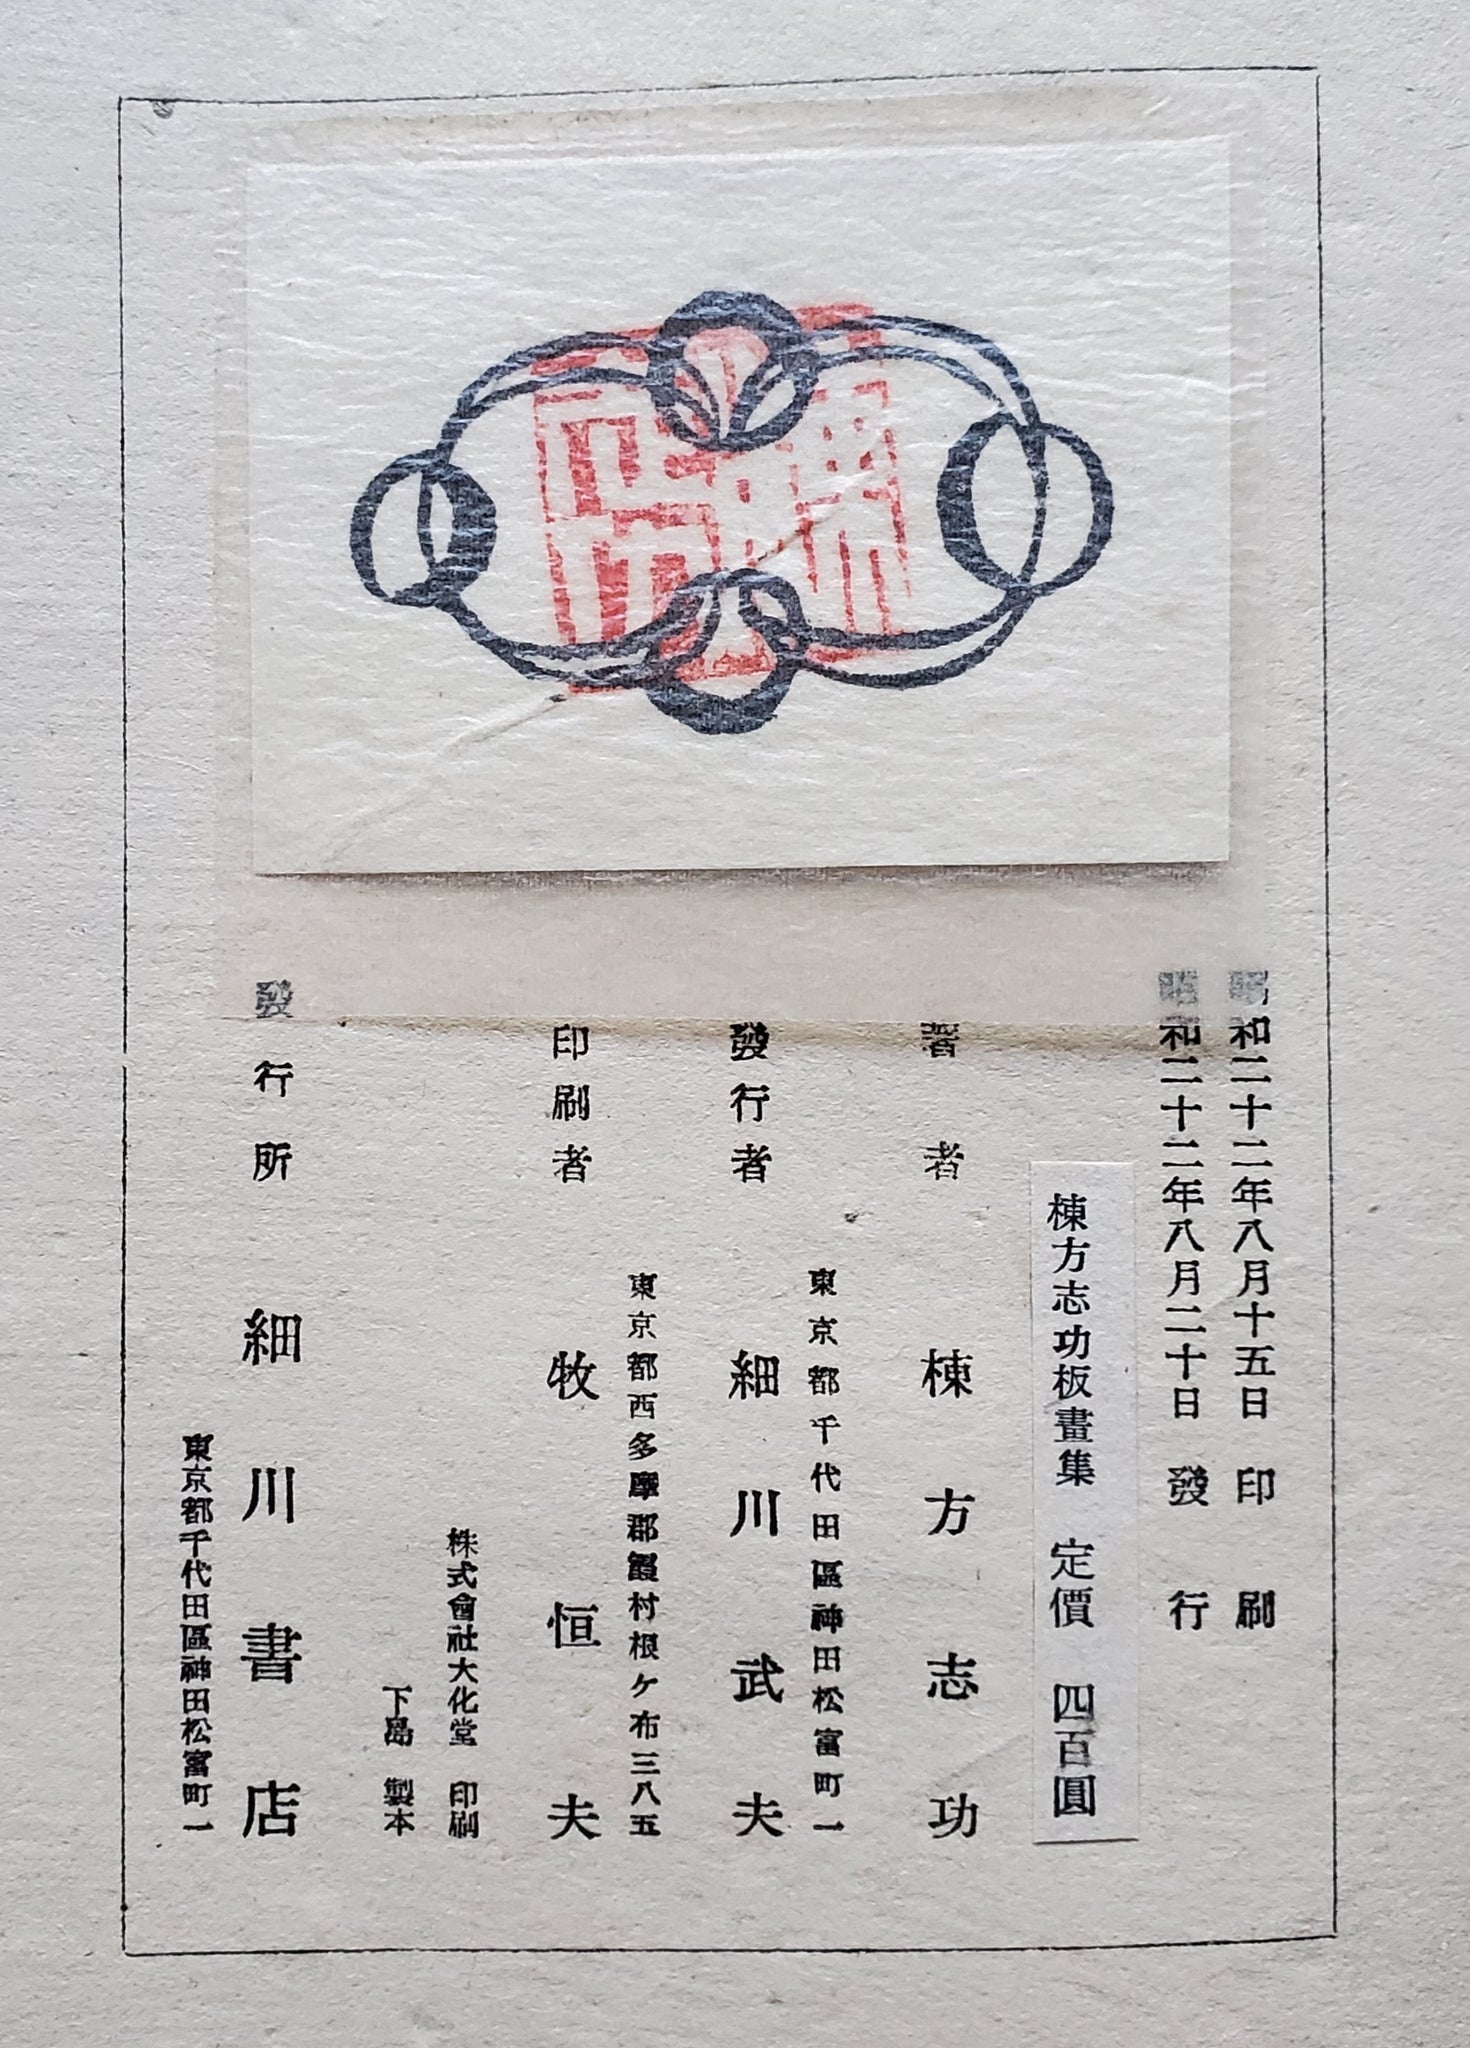 昭和二十二年八月十五日 印刷
昭和二十二年八月二十日 發行
棟方志功板畫集 定價 四百圓
著者 棟方志功
東京都千代田區神田松富町一
發行者 細川武夫
東京都西多摩郡霞村根ケ布三八五
印刷者 牧恒夫
株式會社大化堂 印刷
下島 製本
發行所 細川書店
東京都千代田區神田松富町一